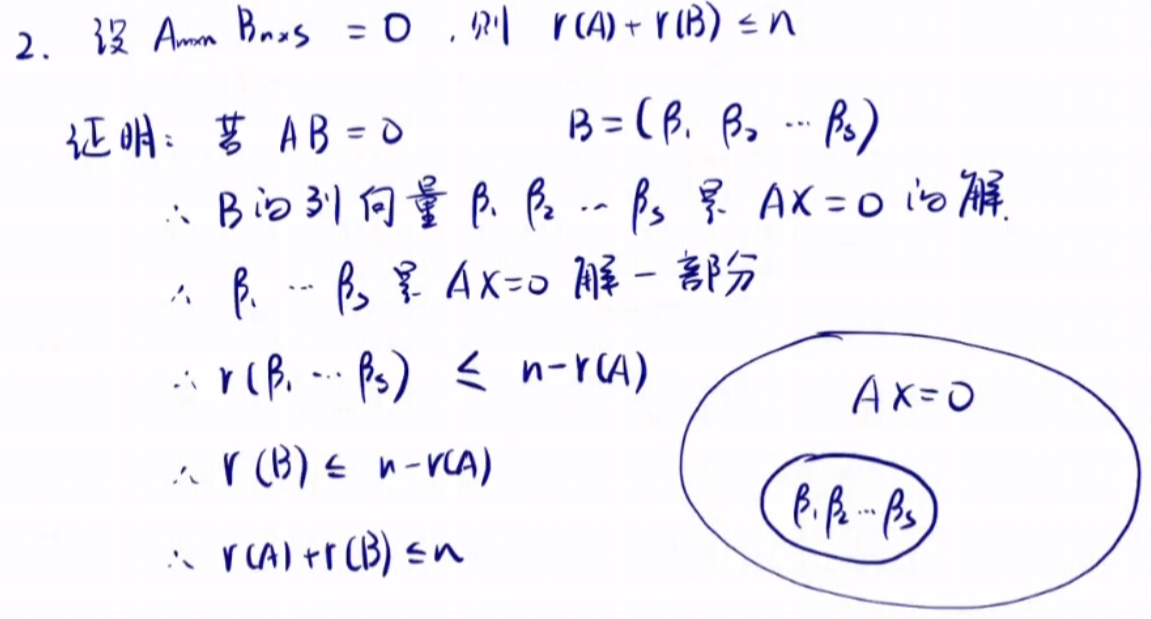 2. 设 Amxn Bnxs = 0 . 则 r(A)+r(B) ≤ n
证明: 若 AB=0 B=(β₁ β₂ … βs)
∴ B的列向量 β₁ β₂ … βs 是 AX=0 的解.
∴ β₁ … βs 是 AX=0 解一部分
∴ r(β₁ … βs) ≤ n-r(A)
∴ r(B) ≤ n-r(A)
∴ r(A)+r(B) ≤ n
AX=0
β₁ β₂ … βs